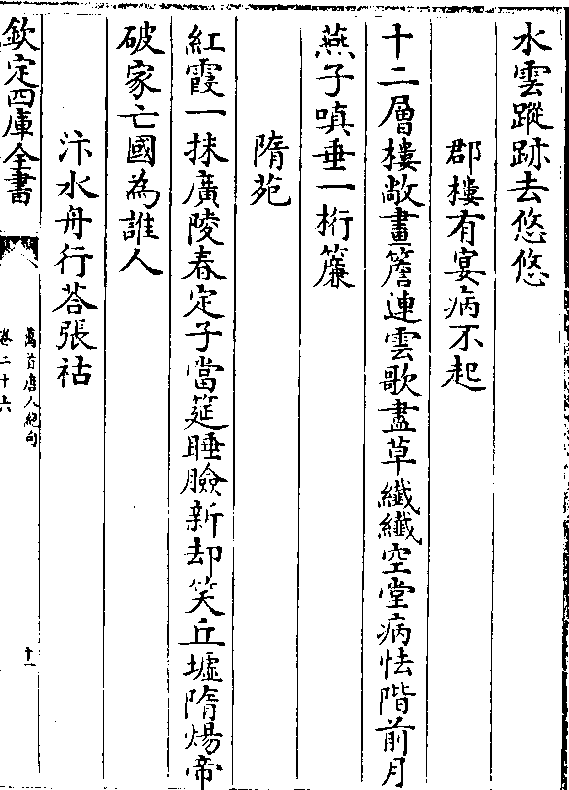 水雲蹤跡去悠悠
郡樓有宴病不起
十二層樓敞畫簷連雲歌盡草纖纖空堂病怯階前月
燕子嗔垂一桁簾
隋苑
紅霞一抹廣陵春定子當筵睡臉新却笑丘墟隋煬帝
破家亡國為誰人
汴水舟行荅張祜
欽定四庫全書
萬首唐人絶句
卷二十六
十一